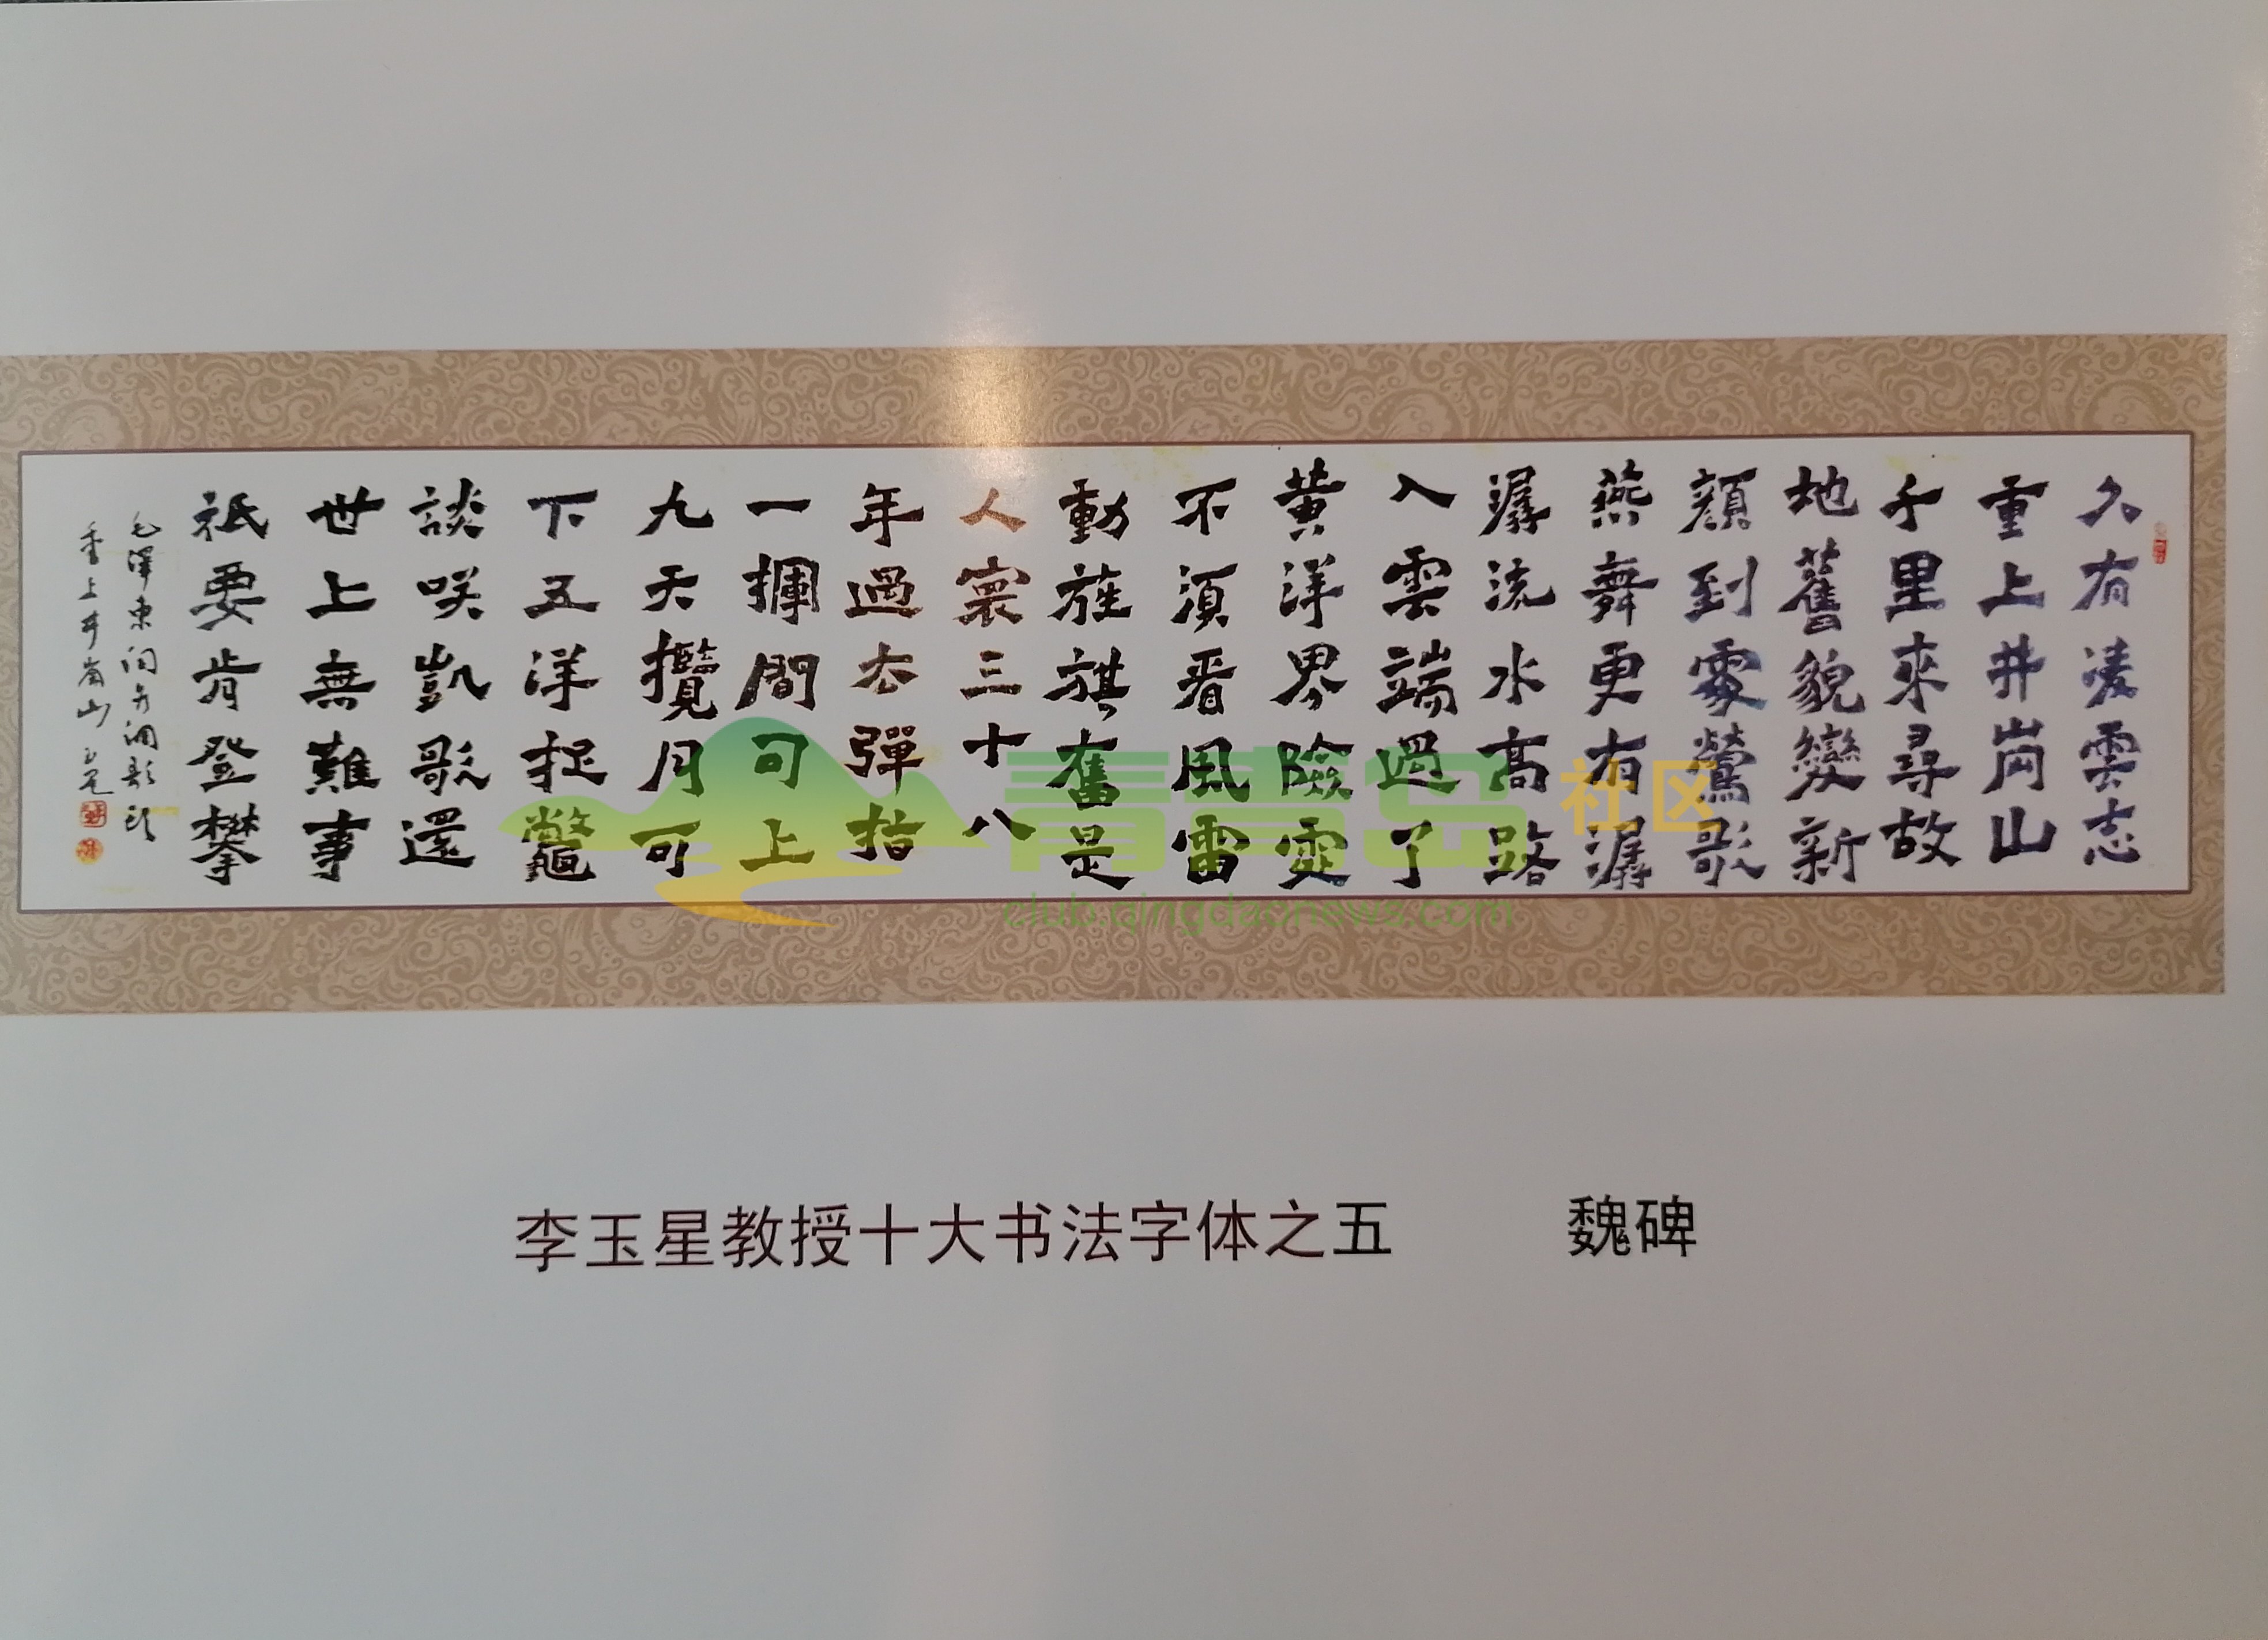 久有凌雲志
重上井崗山
千里來尋故
地舊貌變新
顔到處鶯歌
燕舞更有潺
潺流水高路
入雲端過了
黄洋界險處
不須看風雷
動旌旗奮是
人寰三十八
年過去彈指
一揮間可上
九天攬月可
下五洋捉鼈
談咲凱歌還
世上無難事
祇要肯登攀
毛澤東词水调歌头
重上井崗山 玉星
青青岛社区
club.qingdaonews.com
李玉星教授十大书法字体之五 魏碑